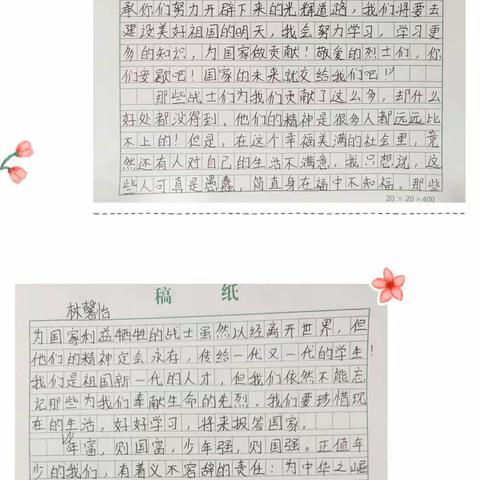 承你们努力开辟下来的光辉道路,我们将要去
建设美好祖国的明天,我会努力学习,学习更
多的知识,为国家做贡献!敬爱的烈士们,你
们安歇吧!国家的未来就交给我们吧!”
那些战士们为我们贡献了这么多,却什么
好处都没得到。他们的精神是很多人都远远比
不上的!但是,在这个幸福美满的社会里,竟
然还有人对自己的生活不满意,我只想说,这
些人可真是愚蠢,简直身在福中不知福。那些
20×20=400
稿 纸
林馨怡
为国家利益牺牲的战士虽然以经离开世界,但
他们的精神定会永存,传给一代又一代的学生!
我们是祖国新一代的人才,但我们依然不能忘
记那些为我们奉献生命的先烈。我们要珍惜现
在的生活,好好学习,将来报答国家。
少年富,则国富,少年强,则国强。正值年
少的我们,有着义不容辞的责任:为中华之崛